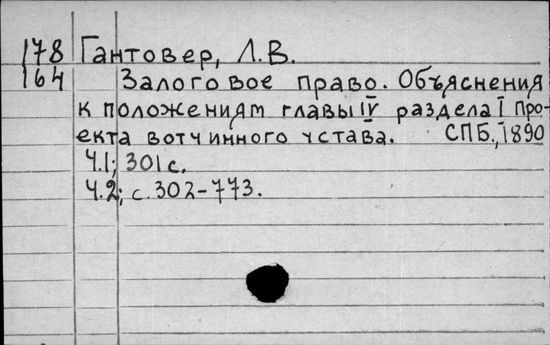 178 Гантовер, Л.В.
164 Залоговое право. Объяснения
к положениям главы IV раздела I Про-
екта вотчинного устава. СПБ., 1890
Ч.1; 301 с.
Ч.2; с. 302-773.